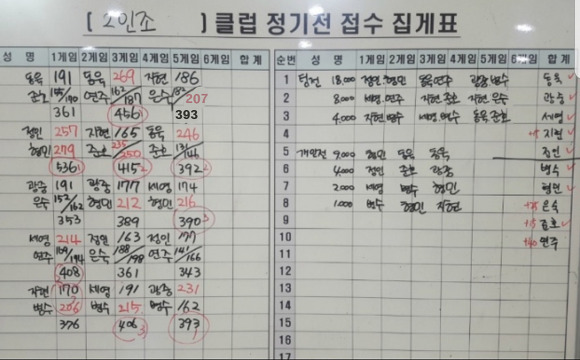 [ 2인조 ] 클럽 정기전 점수 집계표
성 명 1게임 2게임 3게임 4게임 5게임 6게임 합 계 순번 성 명 1게임 2게임 3게임 4게임 5게임 6게임 합 계
동욱 191 동욱 269 지현 186
1 팀전 18,000 정인 형민 동욱 연주 광중 범수 동욱
준호 155/190 연주 162/187 은수 182/207
2 8,000 세영 연주 지현 준호 지현 은수 광중
361 456 1 393
3 4,000 지현 범수 세영 범수 동욱 준호 세영
정인 257 지현 165 동욱 246
4 +5 지현
형민 279 준호 235/250 준호 131/146
5 개인전 9,000 형민 동욱 동욱 정인
536 1 415 2 392 2
6 4,000 정인 준호 광중 범수
광중 191 광중 177 세영 174
7 2,000 세영 범수 형민 형민
은수 152/162 형민 212 형민 216
8 1,000 범수 형민 지현 +25 은수
353 389 390 3
9 +15 준호
세영 214 정인 163 정인 177
10 연주
연주 194 은수 188/198 연주 141/166
11
408 361 343
12
지현 170 세영 191 광중 231
13
범수 206 범수 215 범수 162
14
376 406 3 393 1
15
16
17